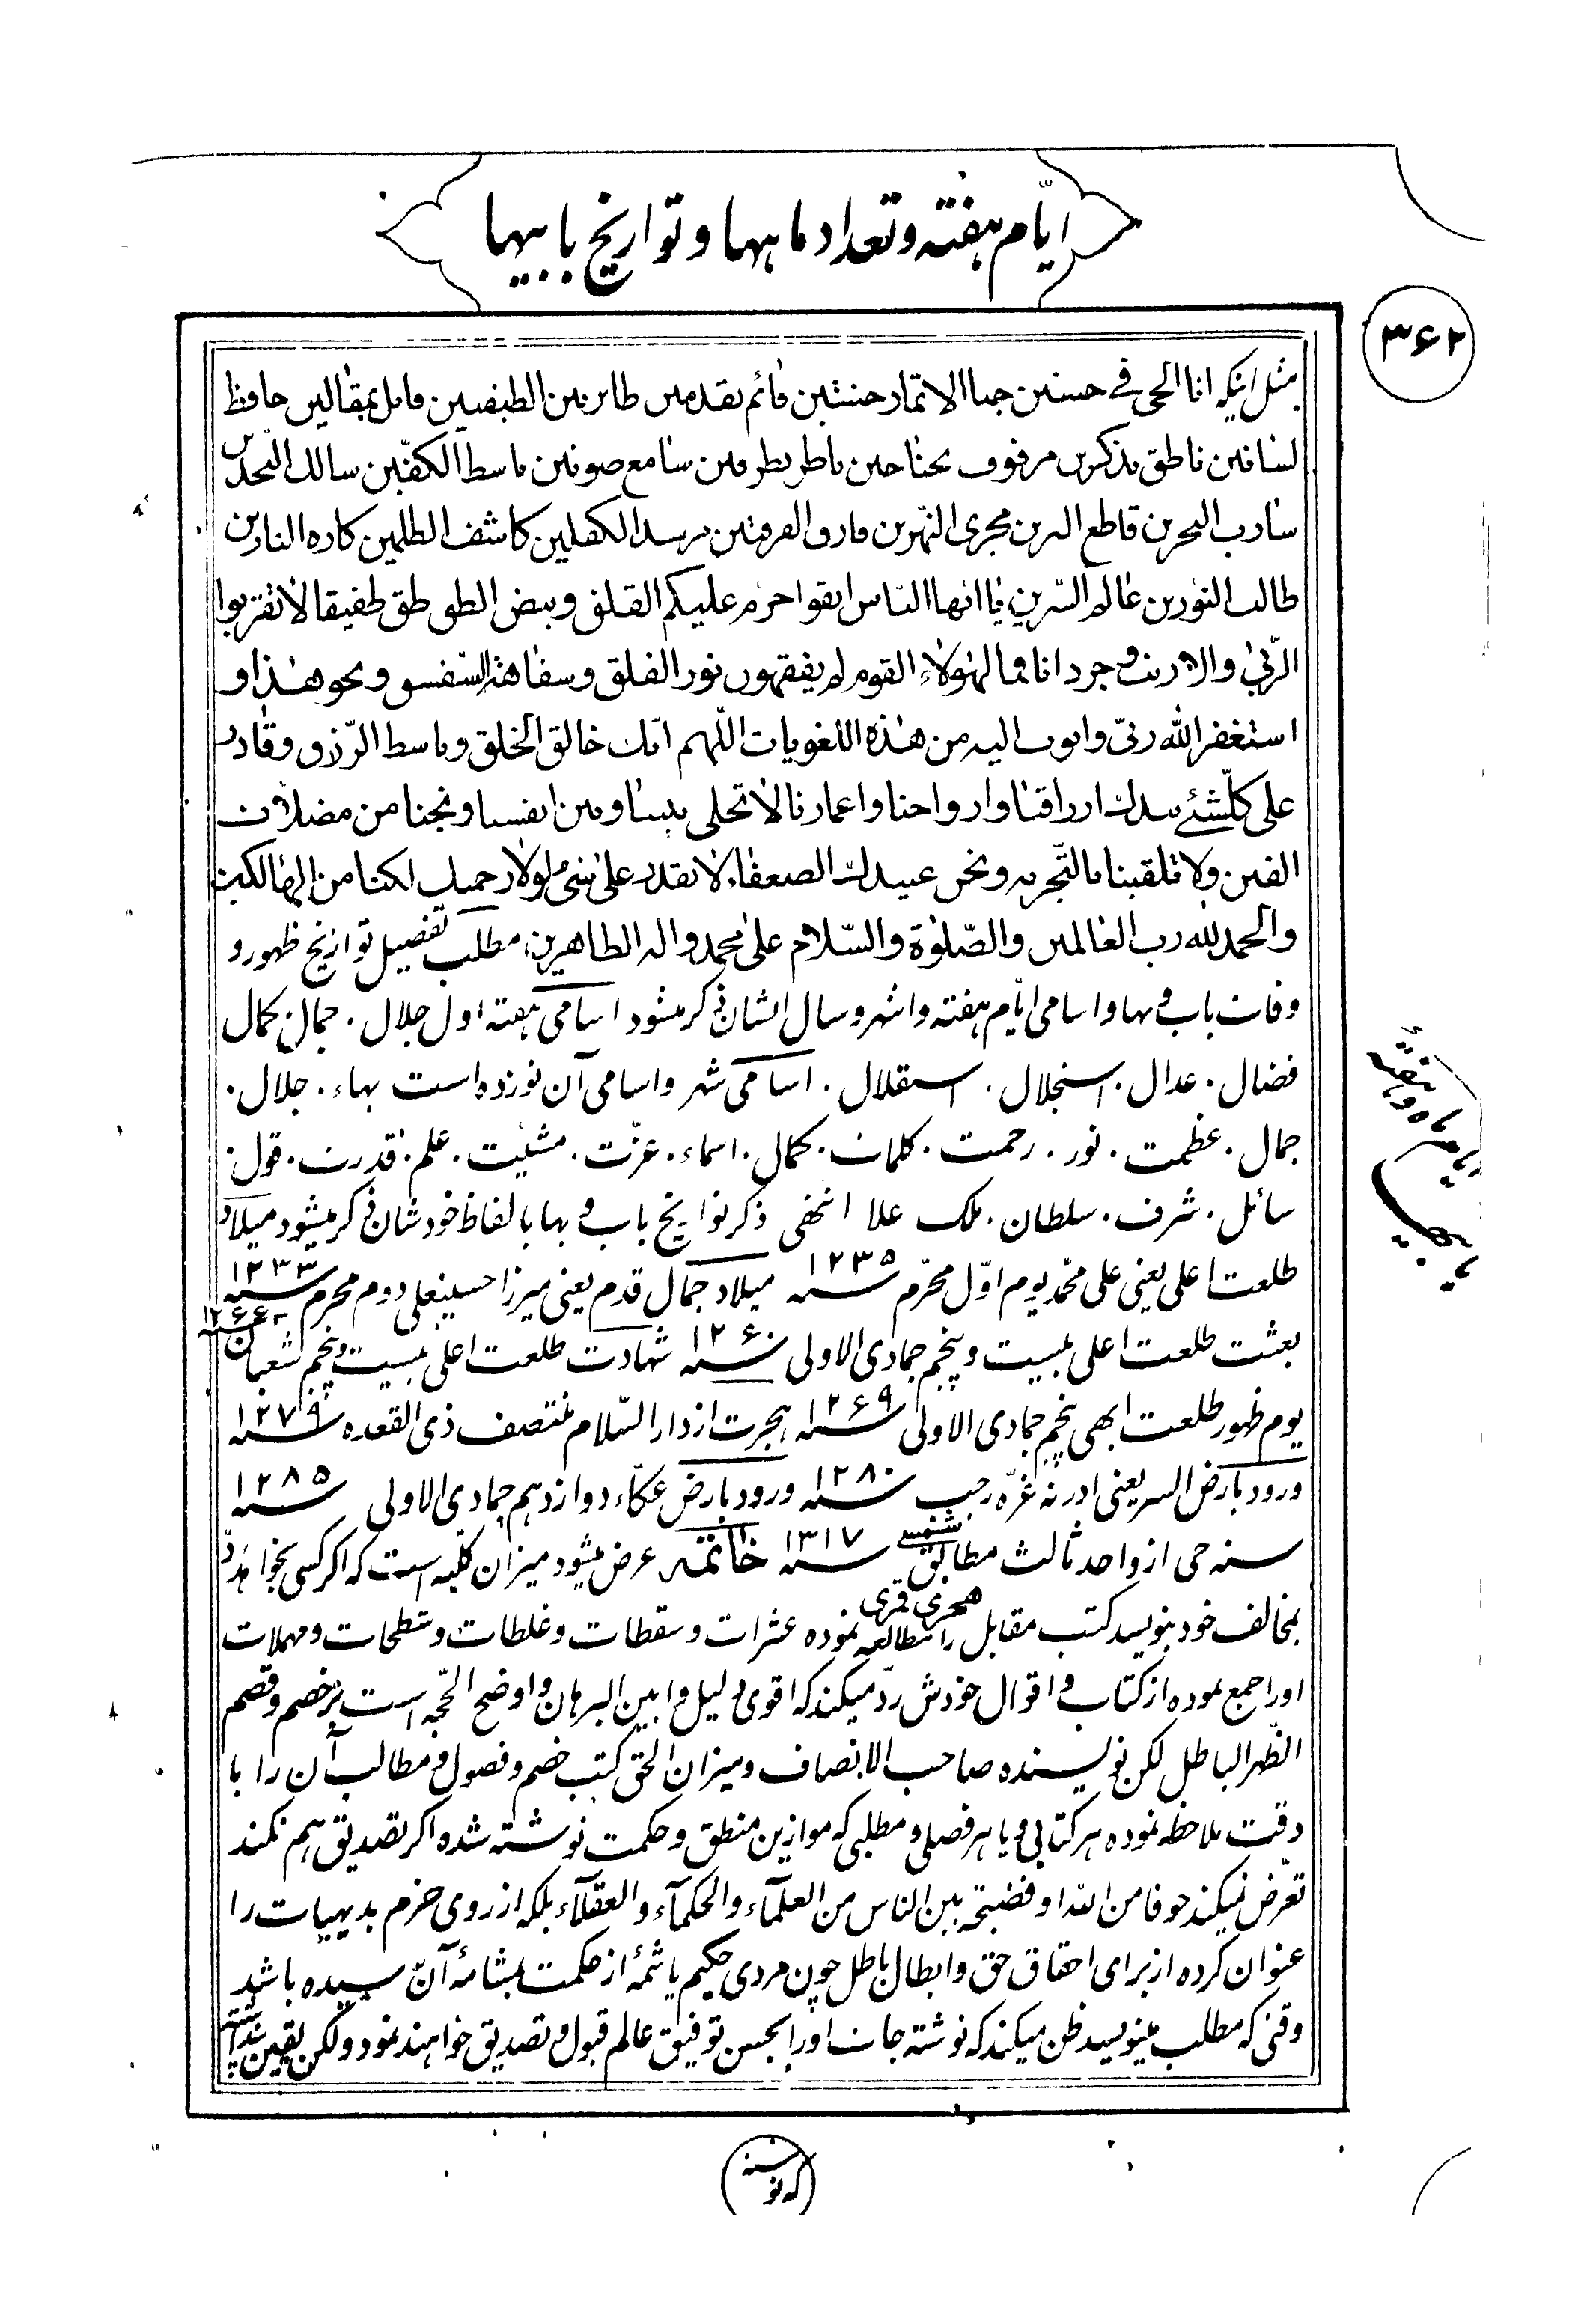 ایّام هفته و تعداد ماهها و تواریخ بابیها
۳۶۲
مثل اینکه انا الحی فی حسنین قائم بقدمین طایر بین الطیفیین قابل بمقالین حافظ
لسانین ناطق بذکرین مرفوف بجناحین ناظر بطرفین سامع صوتین باسط الکفّین سالک النّجدین
سارب البحرین قاطع البرین مجری النّهرین فارق الفرقتین کاشف الظلمین کاره النارین
طالب النورین عالم السّرین یا ایها النّاس اتقوا حرّم علیکم القلق و بیض الطق طق طفیقا لا تقتربوا
الرّبی والارنب و جردانا فما لهؤلاء القوم لم یفقهون نور الفلق و سفاهة و نحو هذا و
استغفر اللّه ربّی و اتوب الیه من هذه اللغویات اللّهم انّک خالق الخلق و باسط الرّزق و قادر
علی کلّ شئ بیدک ارزاقنا و ارواحنا و اعمارنا لا تخلی بیننا و بین انفسنا و نجنا من مضلات
الفتن ولا تلقینا بالتّجربه و نحن عبیدک الضعفاء لا نقدر علی شئ لولا رحمتک لکنا من الهالکین
والحمد للّه رب العالمین والصّلوة والسّلام علی محمد و اله الطاهرین، مطلب تفصیل تواریخ ظهور و
وفات باب و بها و اسامی ایّام هفته و اشهر و سال ایشان ذکر میشود اسامی هفته اول جلال . جمال . کمال
فضال . عدال . استجلال . استقلال . اسامی شهر و اسامی آن نوزده است بهاء . جلال .
جمال . عظمت . نور . رحمت . کلمات . کمال . اسماء . عزّت . مشیّت . علم . قدرت . قول .
سائل . شرف . سلطان . ملک علا انتهی ذکر تواریخ باب و بها بالفاظ خودشان ذکر میشود میلاد
طلعت اعلی یعنی علی محمّد یوم اوّل محرّم سنه ۱۲۳۵ میلاد جمال قدم یعنی میرزا حسینعلی دوم محرم سنه ۱۲۳۳
بعثت طلعت اعلی بیست و پنجم جمادی الاولی سنه ۱۲۶۰ شهادت طلعت اعلی بیست و پنجم شعبان سنه ۱۲۶۶
یوم ظهور طلعت ابهی پنجم جمادی الاولی سنه ۱۲۶۹ هجرت از دار السّلام منتصف ذی القعده سنه ۱۲۷۹
ورود بارض السر یعنی ادرنه غرّه رجب سنه ۱۲۸۰ ورود بارض عکّاء دوازدهم جمادی الاولی سنه ۱۲۸۵
سنه حی از واحد ثالث مطابق شمسی سنه ۱۳۱۷ خاتمه عرض میشود میزان کلّیه است که اگر کسی بخواهد ردّ
هجری قمری
بمخالف خود بنویسد کتب مقابل را مطالعه نموده عثرات و سقطات و غلطات و شطحات و مهملات
اورا جمع نموده از کتاب و اقوال خودش ردّ میکند که اقوی دلیل و ابین البرهان و اوضح الحجّه است بر خصم و قصم
الظّهر الباطل لکن نویسنده صاحب الانصاف و میزان الحق کتب خصم و فصول و مطالب آن را با
دقت ملاحظه نموده هر کتابی و یا هر فصلی و مطلبی که موازین منطق و حکمت نوشته شده اگر تصدیق هم نکند
تعرّض نمیکند خوفا من اللّه او فضیحة بین الناس من العلماء والحکماء والعقلاء بلکه از روی حزم بدیهیات را
عنوان کرده از برای احقاق حق و ابطال باطل چون مردی حکیم یا شمّهٔ از حکمت بشامهٔ آن رسیده باشد
وقتی که مطلب مینویسد ظن میکند که نوشته جات اورا بحسن توفیق عالم قبول و تصدیق خواهند نمود ولکن یقین
که نوشته